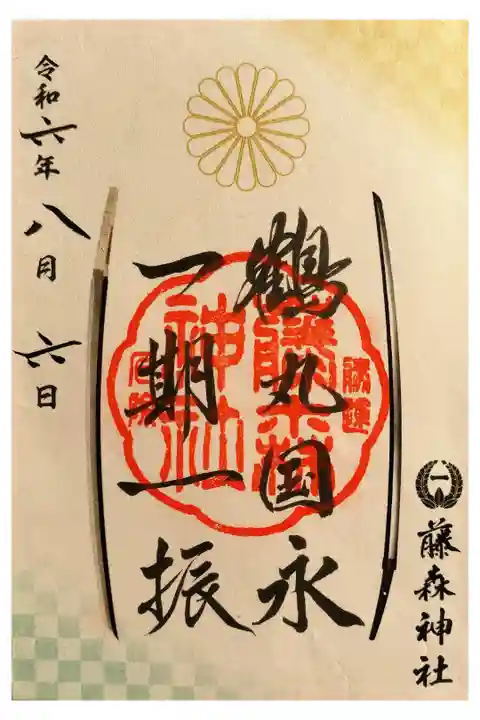 鶴丸国永
一期一振
令和六年八月六日
藤森神社
藤森
神社
勝運